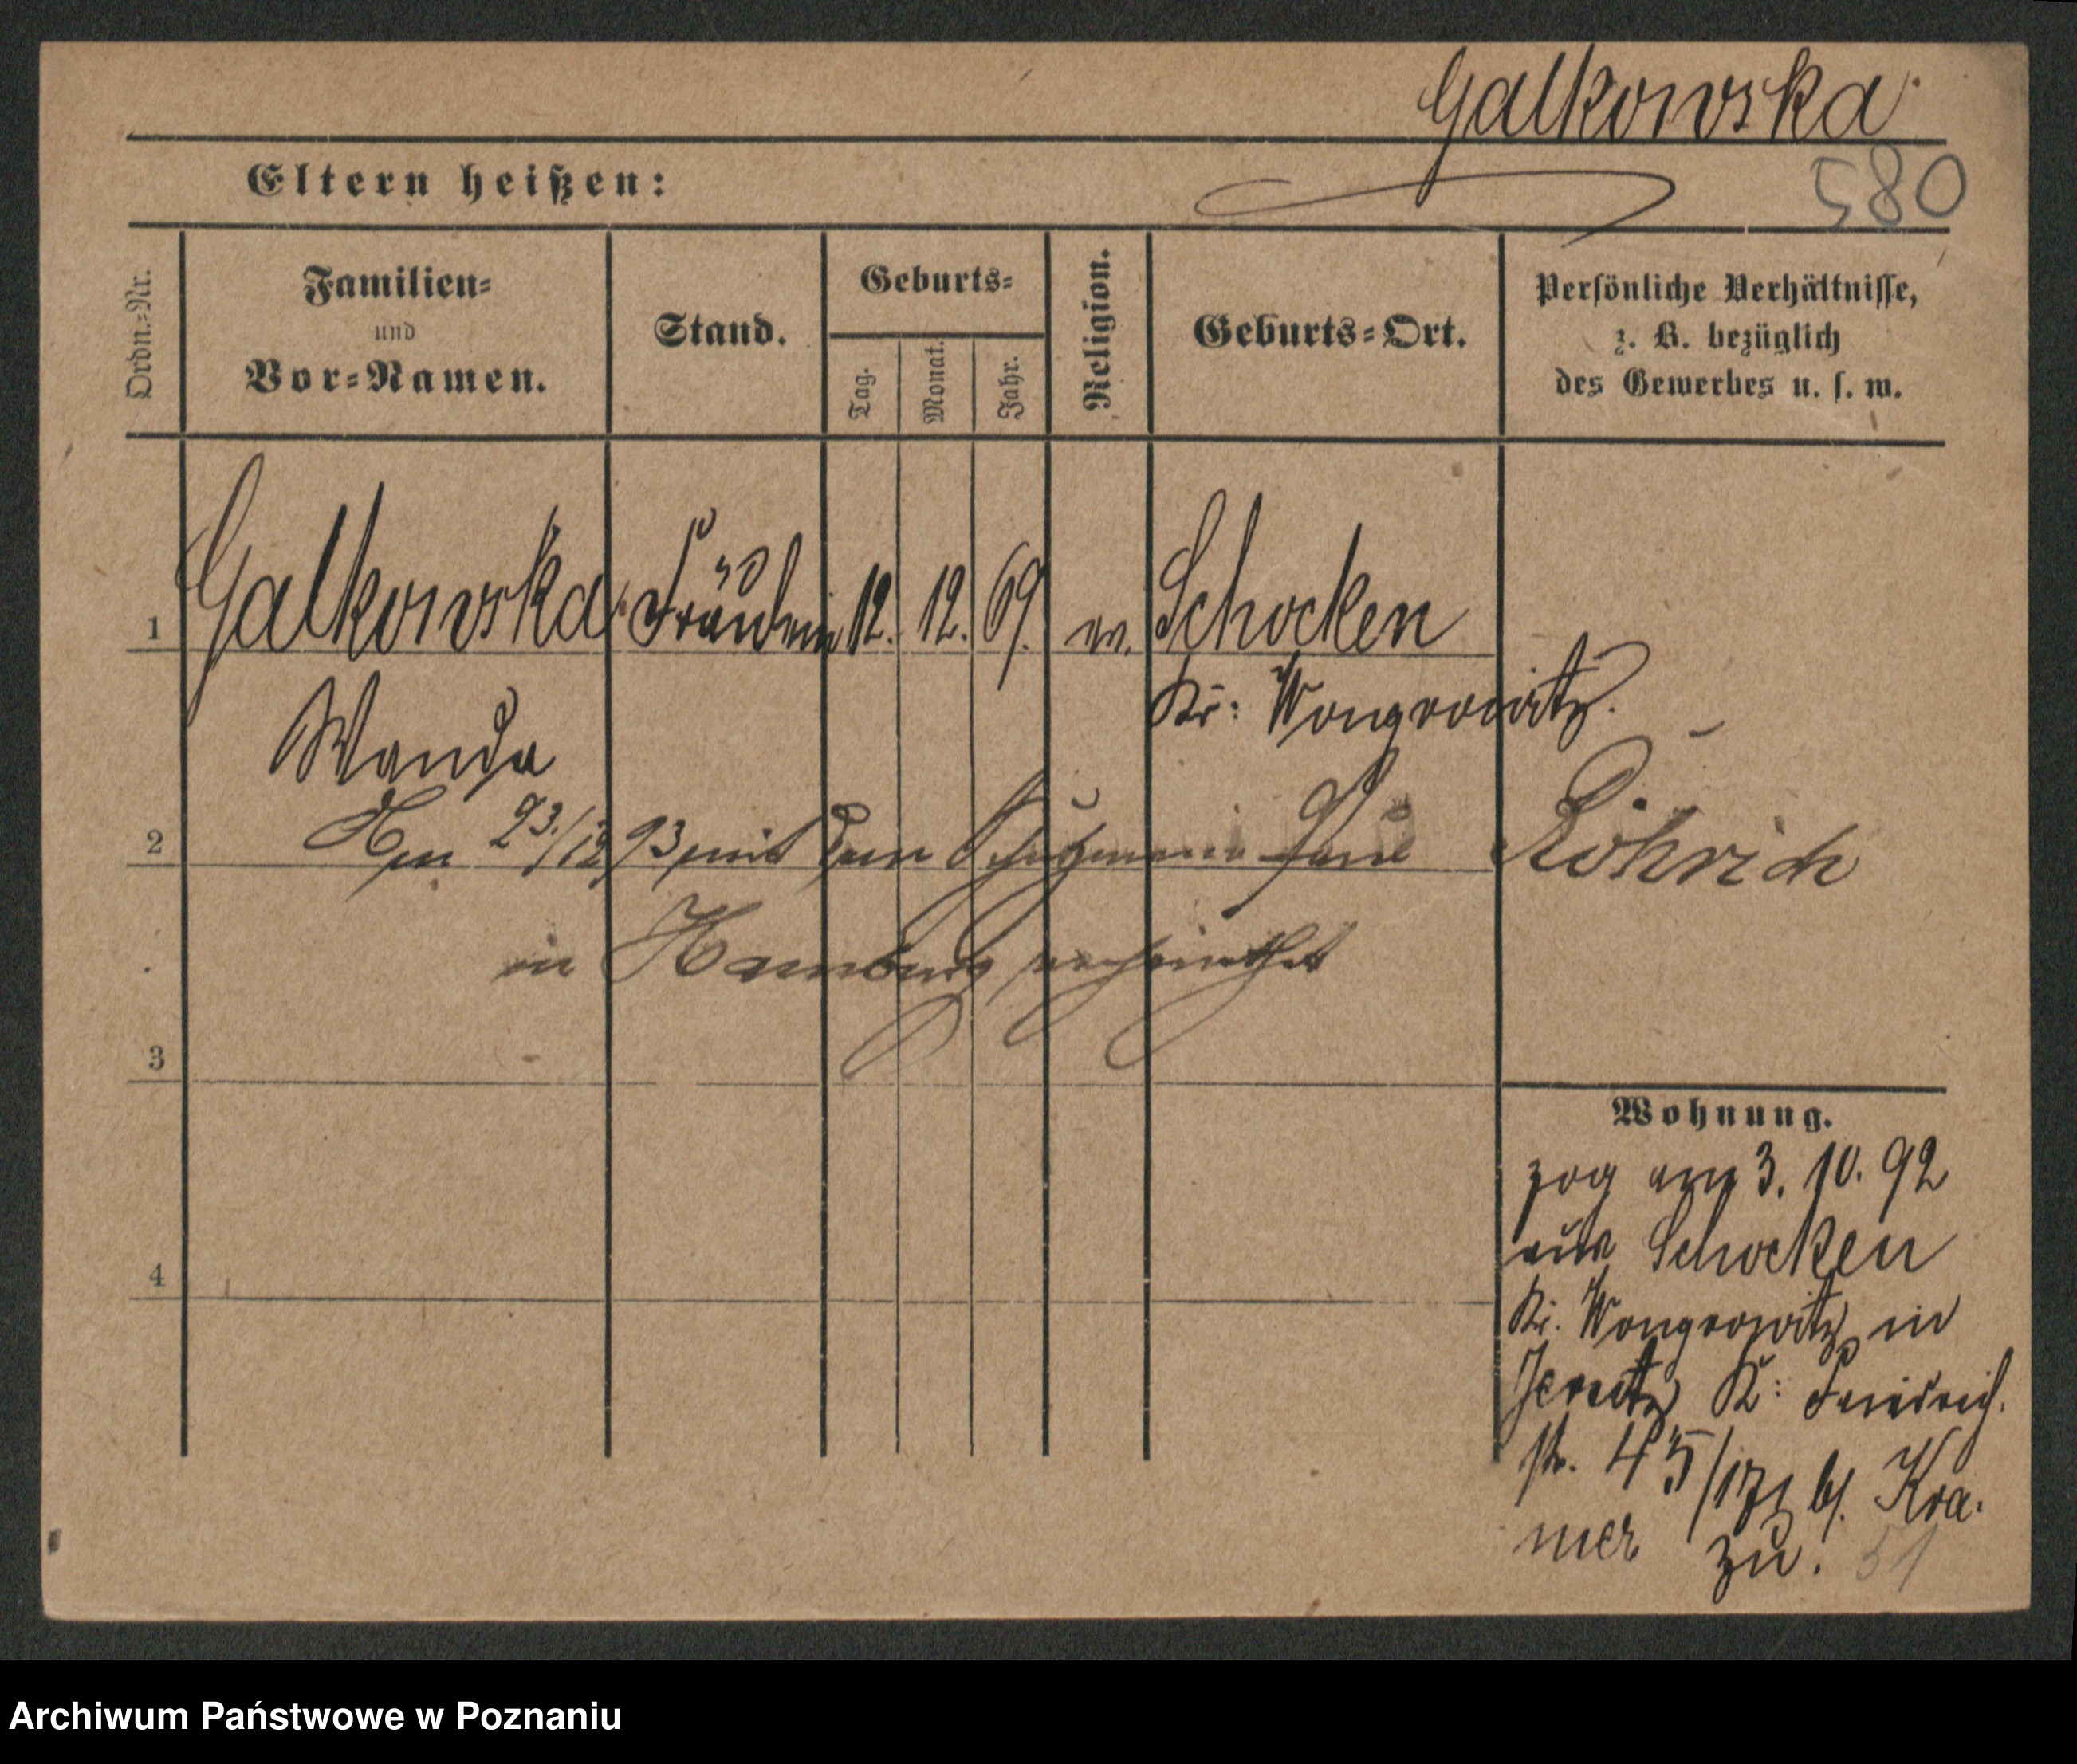 Galkowska
580
Eltern heißen:
Ordn.-Nr.
Familien-
und
Vor-Namen.
Stand.
Geburts-
Tag.
Monat.
Jahr.
Religion.
Geburts-Ort.
Persönliche Verhältnisse,
z. B. bezüglich
des Gewerbes u. s. w.
1 Galkowska Fräulein 12. 12. 69. ev. Schocken
Kr: Wongrowitz.
Wanda
2 Am 23./12 93 mit dem Schutzmann Paul Röhrich
in Hamburg verheirathet
3
4
Wohnung.
zog am 3. 10. 92
aus Schocken
Kr. Wongrowitz in
Jersitz K: Friedrich.
str. 45/17 b/. Kra-
mer zu.
51
Archiwum Państwowe w Poznaniu